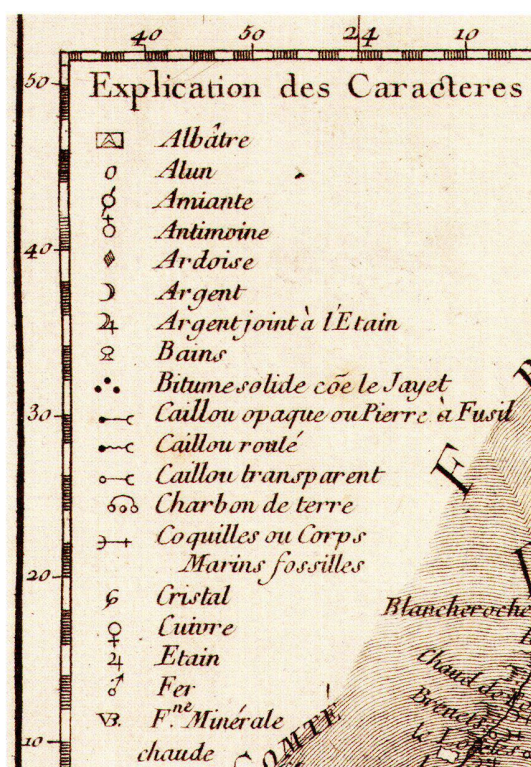 40 50 24 10
50
Explication des Caracteres
Albâtre
Alun
Amiante
Antimoine
Ardoise
Argent
Argent joint à l'Etain
Bains
Bitume solide cōe le Jayet
Caillou opaque ou Pierre à Fusil
Caillou roulé
Caillou transparent
Charbon de terre
Coquilles ou Corps
Marins fossilles
Cristal
Cuivre
Etain
Fer
F.ne Minérale
chaude
40
30
20
10
F
Blancheroche
Chaud de
Brenets
COMTE